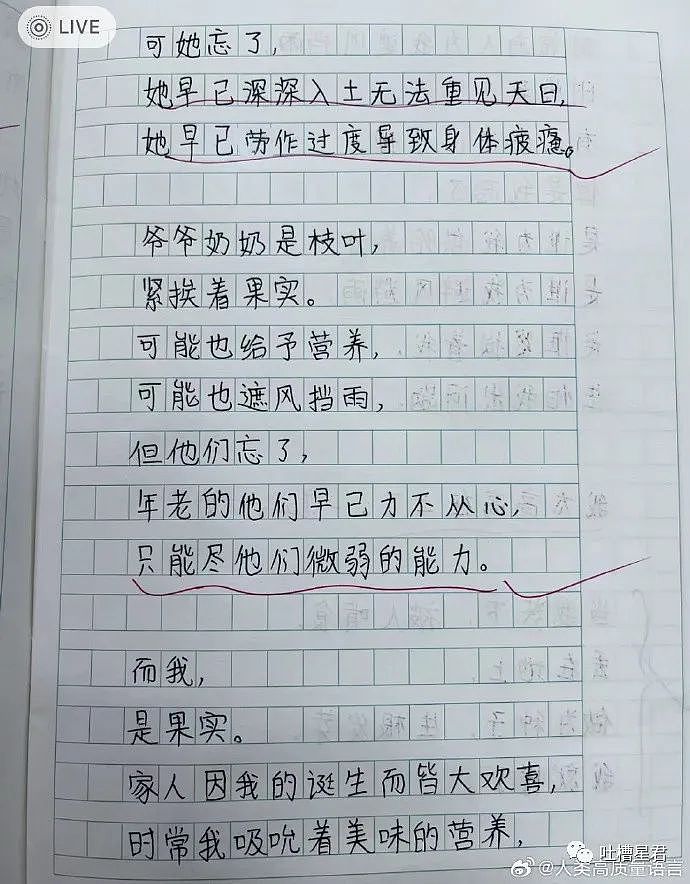 LIVE
可她忘了，
她早已深深入土无法重见天日，
她早已劳作过度导致身体疲惫。
爷爷奶奶是枝叶，
紧挨着果实。
可能也给予营养，
可能也遮风挡雨，
但他们忘了，
年老的他们早已力不从心，
只能尽他们微弱的能力。
而我，
是果实。
家人因我的诞生而皆大欢喜，
时常我吸吮着美味的营养，
吐槽星君
@人类高质量语言